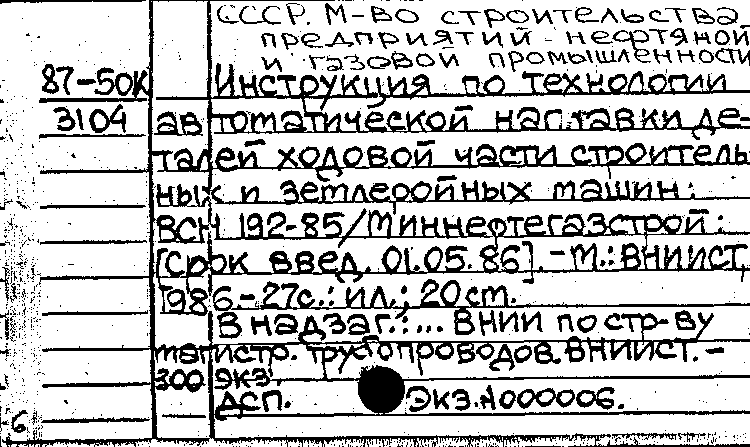 СССР. М-во строительства
предприятий нефтяной
и газовой промышленности
87-50К Инструкция по технологии
3104 автоматической наплавки де-
талей ходовой части строитель-
ных и землеройных машин:
ВСН 192-85/Миннефтегазстрой:
[Срок введ. 01.05.86].-М.: ВНИИСТ,
1986.-27с.: ил.; 20 см.
В надзаг.:... ВНИИ по стр-ву
магистр. трубопроводов. ВНИИСТ.-
300 экз.
ДСП. Экз.№000006.
6